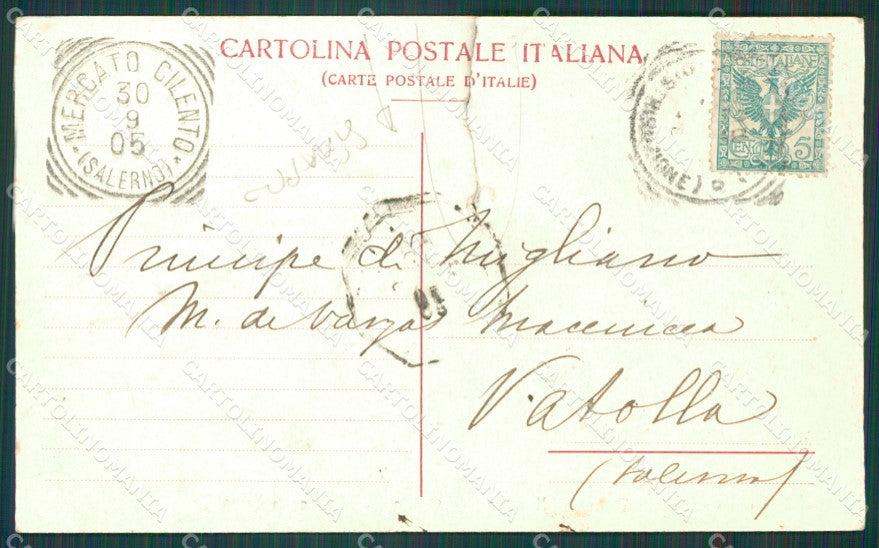 CARTOLINA POSTALE ITALIANA
(CARTE POSTALE D'ITALIE)
MERCATO CILENTO
30
9
05
(SALERNO)
POSTE ITALIANE
5
Principe di Migliano
M. de Vargas Macciucca
Vatolla
(Salerno)
CARTOLINOMANIA